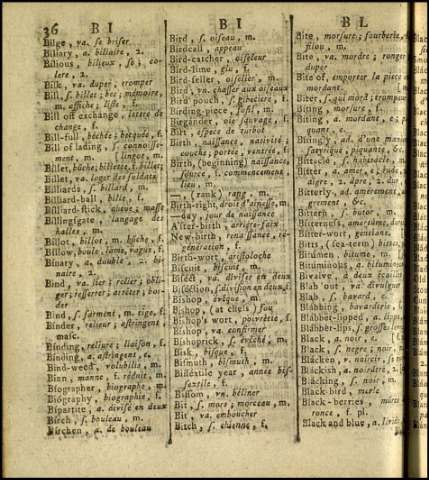 36 B I
B I
B L
Bilge, va. se briser
Biliary, a. biliaire, 2.
Bilious, bilieux, se; co-
lere, 2.
Bilk, va. duper, tromper
Bill, s. billet; bec; mémoire,
m. affiche; liste, f.
Bill off exchange, lettre de
change, f.
Bill-full, béchée; becquée, f.
Bill of lading, s. connoisse-
ment, m. lingot, m.
Billet, bûche; billette, f. billet;
Billet, va. loger des soldats
Billiards, s. billard, m.
Billiard-ball, bille, f.
Billiard-stick, queue; masse
Billingsgate, langage des
halles, m.
Billot, billot, m. bûche, f.
Billow, houle; lame, vague, f.
Binary, a. double, 2. bi-
naire, 2.
Bind, va. lier; relier; obli-
ger; resserrer; arrêter; bor-
der
Bind, s. sarment, m. tige, f.
Binder, relieur; astringent,
masc.
Binding, reliure; liaison, f.
Binding, a. astringent, e.
Bind-weed, volubilis, m.
Binn, manne, f. réduit, m.
Biographer, biographe, m.
Biography, biographie, f.
Bipartite, a. divisé en deux
Birch, s. bouleau, m.
Birchen, a. de bouleau
Bird, s. oiseau, m.
Birdcall, appeau
Bird-catcher, oiseleur
Bird-lime, glu, f.
Bird-feller, oiselier, m.
Bird, vn. chasser aux oiseaux
Bird pouch, s. gibeciere, f.
Birding-piece, fusil, m.
Birgander, oie sauvage, f.
Birt, espece de turbot
Birth, naissance, nativité,
couche; portée, ventrée, f.
Birth, (beginning) naissance,
source, f. commencement,
lieu, m.
—, (rank) rang, m.
Birth-right, droit d'ainesse, m.
—day, jour de naissance
After-birth, arriere-faix
New-birth, renaissance, re-
génération, f.
Birth-wort, aristoloche
Biscuit, biscuit, m.
Bisect, va. diviser en deux
Bisection, s. division en deux, f.
Bishop, évêque, m.
Bishop, (at chess) fou
Bishop's wort, poivrette, f.
Bishop, va. confirmer
Bishoprick, s. évêché, m.
Bisk, bisque, f.
Bismuth, bismuth, m.
Bissextile year, année bis-
sextile, f.
Bissom, vn. béliner
Bit, s. mors; morceau, m.
Bit, va. emboucher
Bitch, s. chienne, f.
Bite, morsure; fourberie, f.
filou, m.
Bite, va. mordre; ronger
duper
Bite of, emporter la piece en
mordant
Biter, s. qui mord; trompeur
Biting, morsure, f.
Biting, a. mordant, e; pi-
quant, e.
Bitingly, ad. d'une maniere
satyrique, piquante, &c.
Bitter, a. amer, e; rude,
aigre, 2. âpre, 2. dur
Bitterly, ad. amérement, ai-
grement, &c.
Bittern, s. butor, m.
Bitterness, amertume, dou
Bitter-wort, gentiane
Bitts, (sea-term) bittes, f.
Bitumen, bitume, m.
Bituminous, a. bitumineux
Bivalve, à deux écailles
Blab out, va. divulguer
Blab, s. bavard, e
Blabbing, bavarderie
Blabber-lipped, a. lippu
Blabber-lips, s. grosses levres
Black, a. noir, e.
Black, s. negre; noir, m.
Blacken, v. noircir
Blackish, a. noirâtre, 2.
Blacking, s. noir, m.
Black-bird, merle
Black-berries, mûres
ronce, f. pl.
Black and blue, a. livide